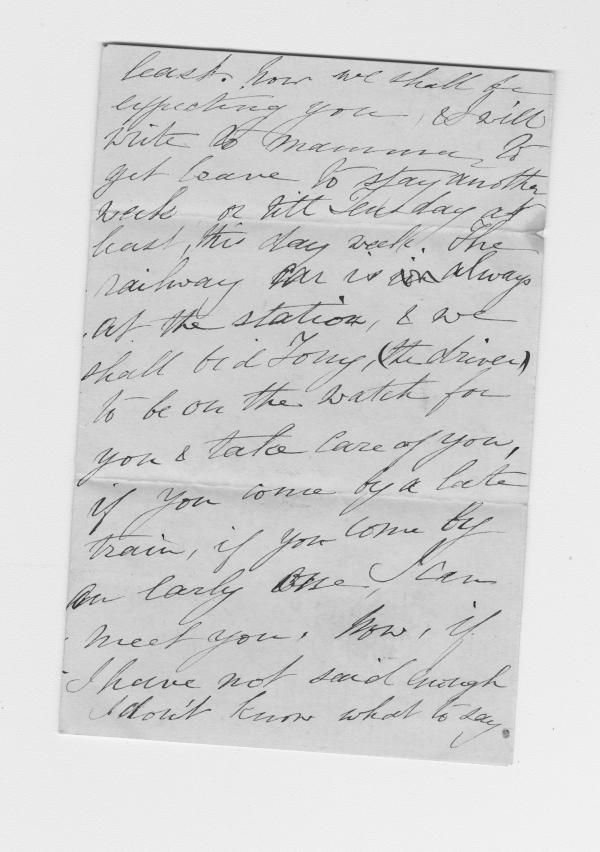 least. Now we shall be
expecting you, & I will
write to mamma, to
get leave to stay another
week or till Tuesday at
least, this day week. The
railway car is always
at the station, & we
shall bid Tony, (the driver)
to be on the watch for
you & take care of you,
if you come by a late
train, if you come by
an early one, I can
meet you. Now, if
I have not said enough
I don't know what to say.